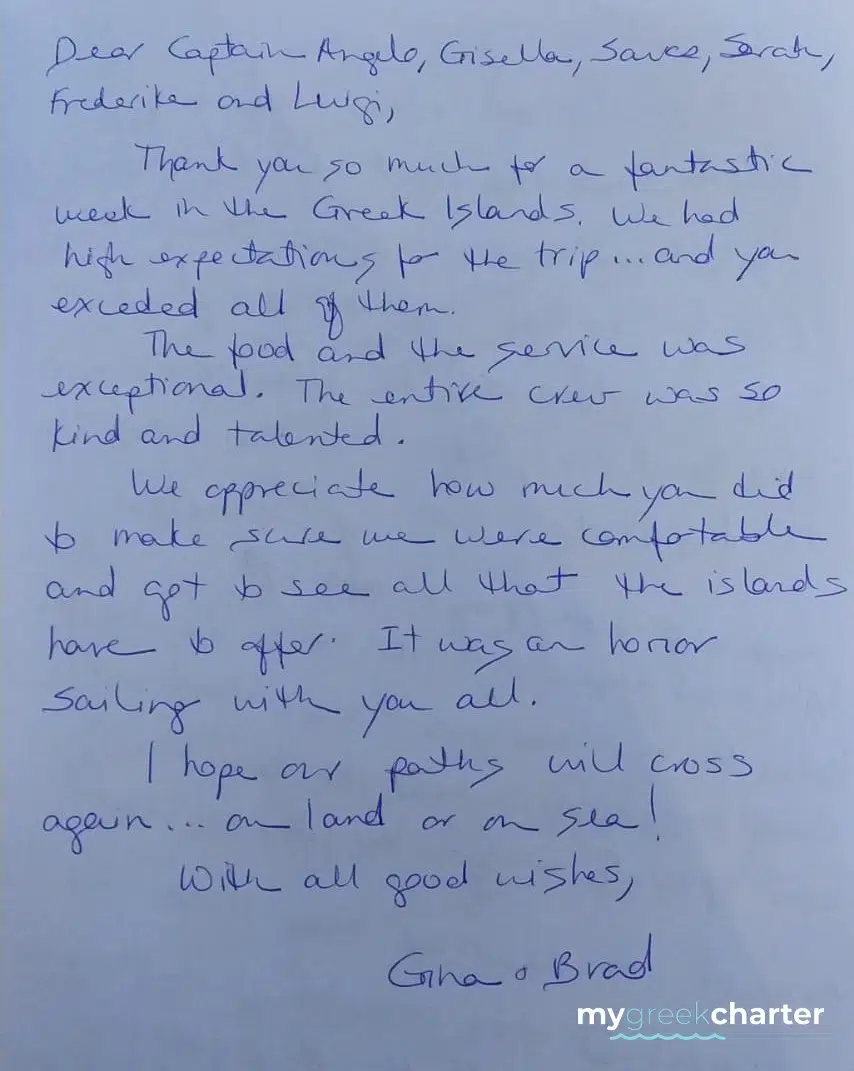 Dear Captain Angelo, Gisella, Savea, Sarah,
Frederike and Luigi,
Thank you so much for a fantastic
week in the Greek Islands. We had
high expectations for the trip... and you
exceded all of them.
The food and the service was
exceptional. The entire crew was so
kind and talented.
We appreciate how much you did
to make sure we were comfortable
and got to see all that the islands
have to offer. It was an honor
sailing with you all.
I hope our paths will cross
again... on land or on sea!
With all good wishes,
Gina & Brad
mygreekcharter